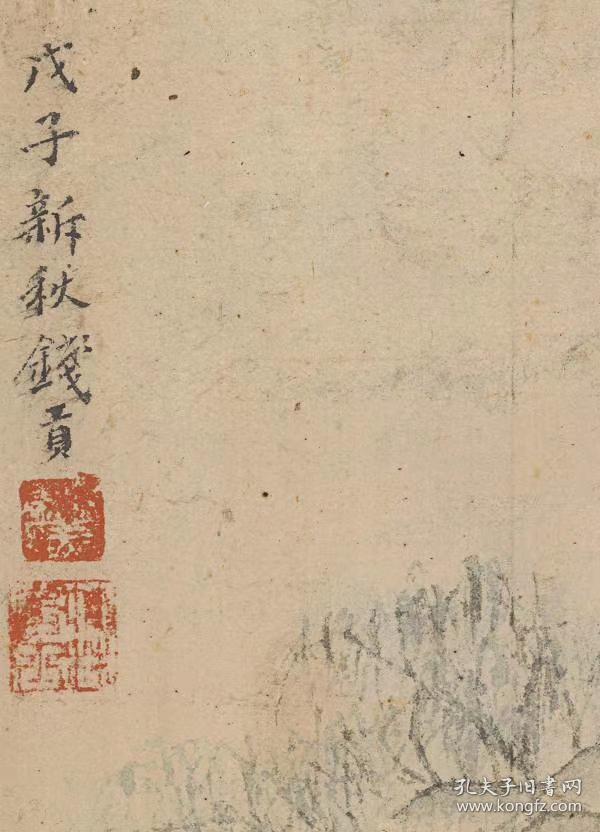 戊子新秋錢貢
孔夫子旧書网
www.kongfz.com